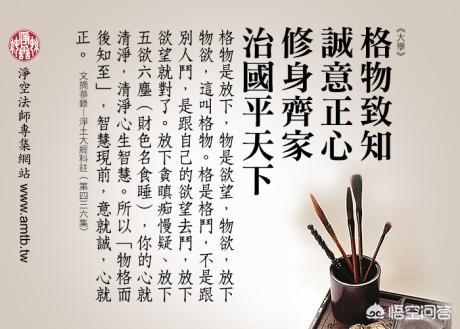 《大學》
格物致知
誠意正心
修身齊家
治國平天下
格物是放下，物是欲望，物欲，放下
物欲，這叫格物。格是格鬥，不是跟
別人鬥，是跟自己的欲望去鬥，放下
欲望就對了。放下貪瞋痴慢疑、放下
五欲六塵（財色名食睡），你的心就
清淨，清淨心生智慧。所以「物格而
後知至」，智慧現前，意就誠，心就
正。 文摘恭錄—淨土大經科註（第四三六集）
淨空法師專集網站 www.amtb.tw
悟空问答